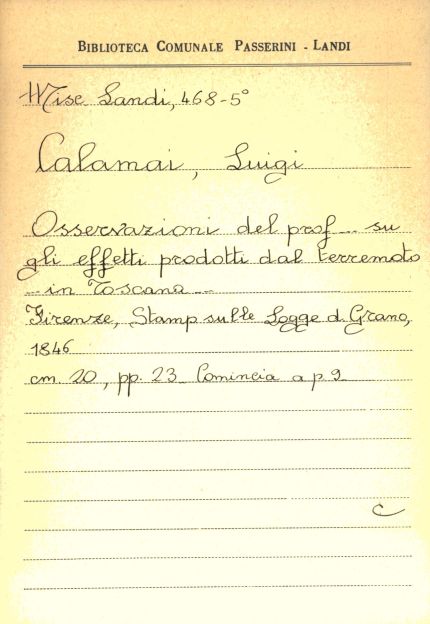 BIBLIOTECA COMUNALE PASSERINI - LANDI
Misc Landi, 468-5°
Calamai, Luigi
Osservazioni del prof ... su
gli effetti prodotti dal terremoto
... in Toscana ...
Firenze, Stamp sulle Logge d. Grano,
1846
cm. 20, pp. 23 Comincia a p. 9
C